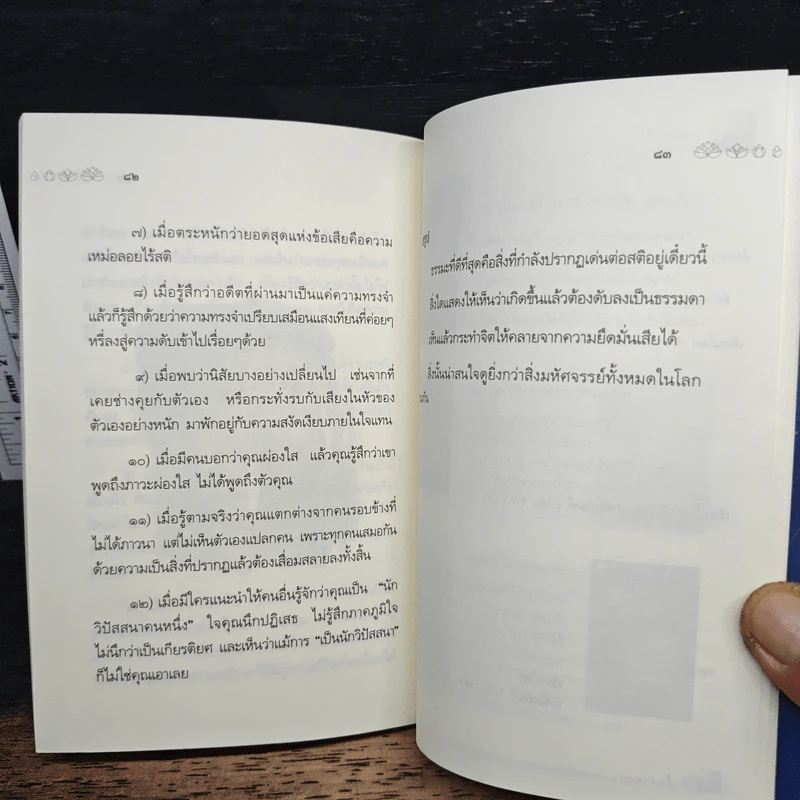 ๘๒
๗) เมื่อตระหนักว่ายอดสุดแห่งข้อเสียคือความ
เหม่อลอยไร้สติ
๘) เมื่อรู้สึกว่าอดีตที่ผ่านมาเป็นแค่ความทรงจำ
แล้วก็รู้สึกด้วยว่าความทรงจำเปรียบเสมือนแสงเทียนที่ค่อยๆ
หรี่ลงสู่ความดับเข้าไปเรื่อยๆด้วย
๙) เมื่อพบว่านิสัยบางอย่างเปลี่ยนไป เช่นจากที่
เคยช่างคุยกับตัวเอง หรือกระทั่งรบกับเสียงในหัวของ
ตัวเองอย่างหนัก มาพักอยู่กับความสงัดเงียบภายในใจแทน
๑๐) เมื่อมีคนบอกว่าคุณผ่องใส แล้วคุณรู้สึกว่าเขา
พูดถึงภาวะผ่องใส ไม่ได้พูดถึงตัวคุณ
๑๑) เมื่อรู้ตามจริงว่าคุณแตกต่างจากคนรอบข้างที่
ไม่ได้ภาวนา แต่ไม่เห็นตัวเองแปลกคน เพราะทุกคนเสมอกัน
ด้วยความเป็นสิ่งที่ปรากฏแล้วต้องเสื่อมสลายลงทั้งสิ้น
๑๒) เมื่อมีใครแนะนำให้คนอื่นรู้จักว่าคุณเป็น “นัก
วิปัสสนาคนหนึ่ง” ใจคุณนึกปฏิเสธ ไม่รู้สึกภาคภูมิใจ
ไม่นึกว่าเป็นเกียรติยศ และเห็นว่าแม้การ “เป็นนักวิปัสสนา”
ก็ไม่ใช่คุณเอาเลย
๘๓
รุป
ธรรมะที่ดีที่สุดคือสิ่งที่กำลังปรากฏเด่นต่อสติอยู่เดี๋ยวนี้
สิ่งใดแสดงให้เห็นว่าเกิดขึ้นแล้วต้องดับลงเป็นธรรมดา
เห็นแล้วกระทำจิตให้คลายจากความยึดมั่นเสียได้
สิ่งนั้นน่าสนใจดูยิ่งกว่าสิ่งมหัศจรรย์ทั้งหมดในโลก